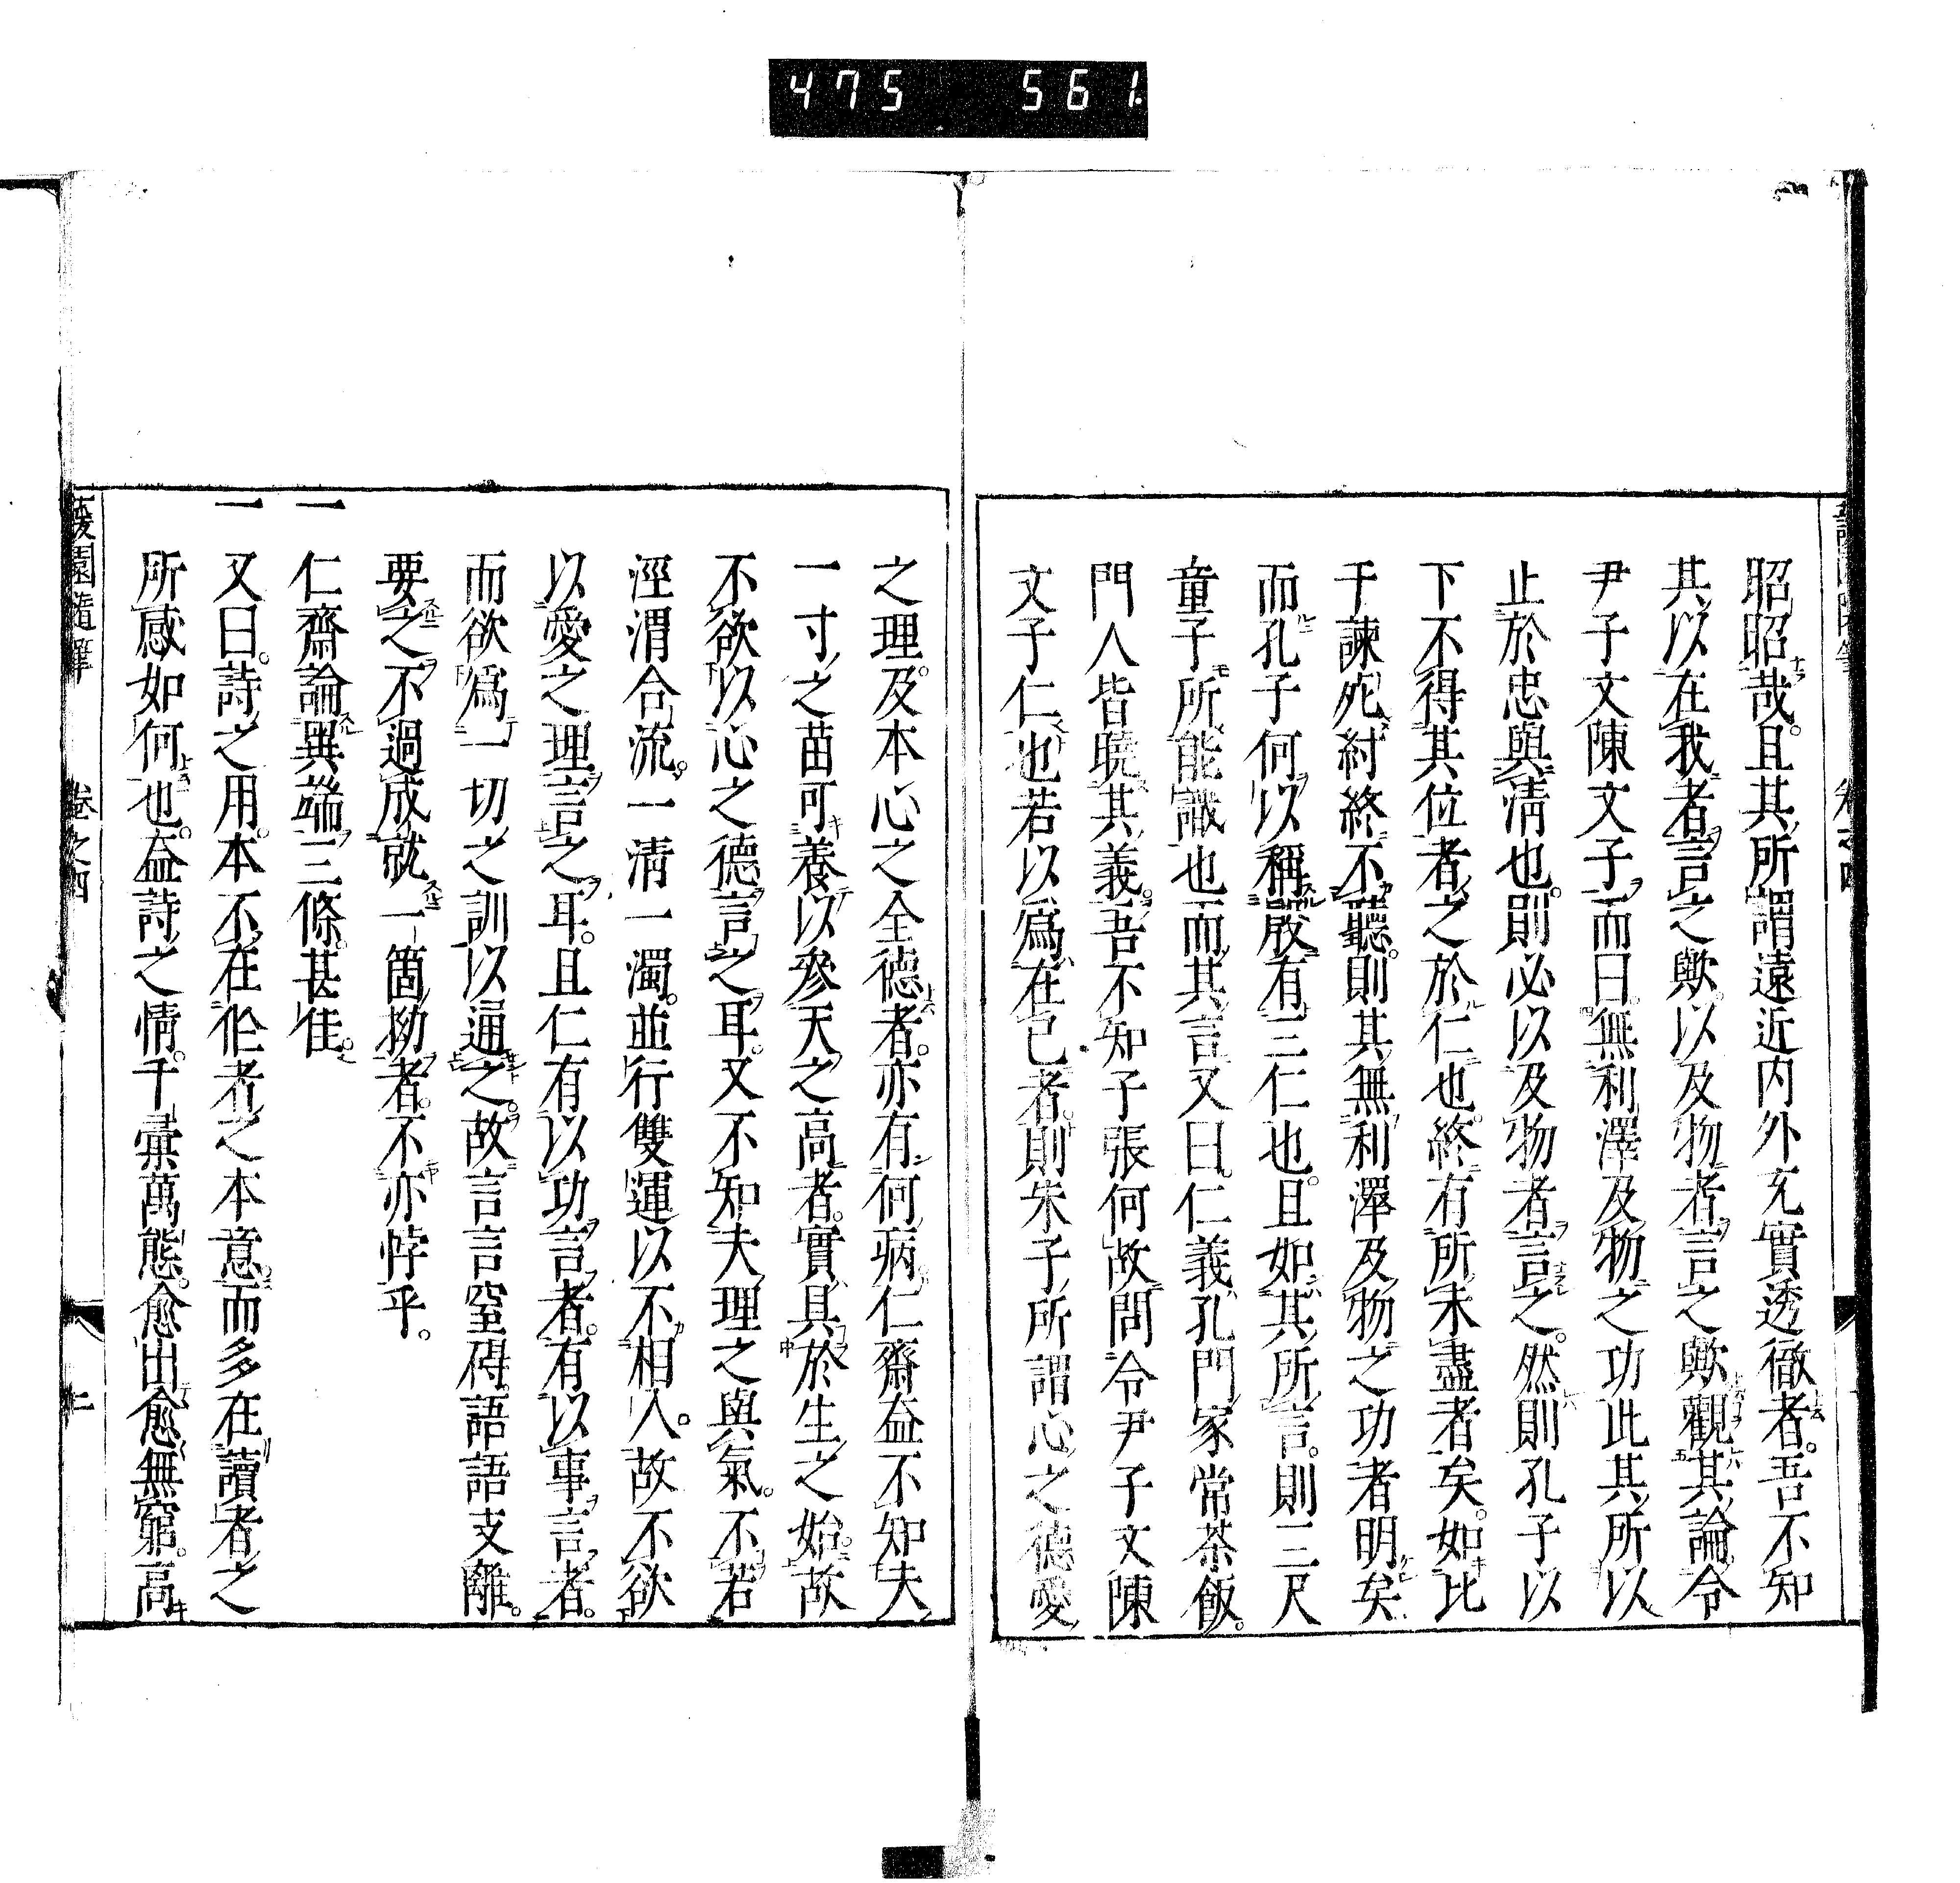 475 561
昭昭哉。且其所謂遠近内外充實透徹者。吾不知
其以在我者言之歟。以及物者言之歟觀其論令
尹子文陳文子而曰。無利澤及物之功此其所以
止於忠與淸也。則必以及物者言之。然則孔子以
下不得其位者之於仁也。終有所未盡者矣。如比
于諫死紂終不聽。則其無利澤及物之功者明矣
而孔子何以稱殷有三仁也。且如其所言。則三尺
童子所能識也而其言又曰。仁義孔門家常茶飯。
門人皆曉其義。吾不知子張何故問令尹子文陳
文子仁也若以爲在己者。則朱子所謂心之德愛
之理。及本心之全德者。亦有何病。仁齋益不知夫
一寸之苗可養以參天之高者。實具於生之始。故
不欲以心之德言之耳。又不知夫理之與氣。不若
涇渭合流。一淸一濁。並行雙運以不相入。故不欲
以愛之理言之耳。且仁有以功言者。有以事言者。
而欲爲一切之訓以通之。故言言窒碍語語支離。
要之不過成就一箇拗者。不亦悖乎。
一仁齋論異端三條。甚佳。
一又曰。詩之用。本不在作者之本意。而多在讀者之
所感如何也。益詩之情。千彙萬態。愈出愈無窮。高
蘐園隨筆 卷之四 二